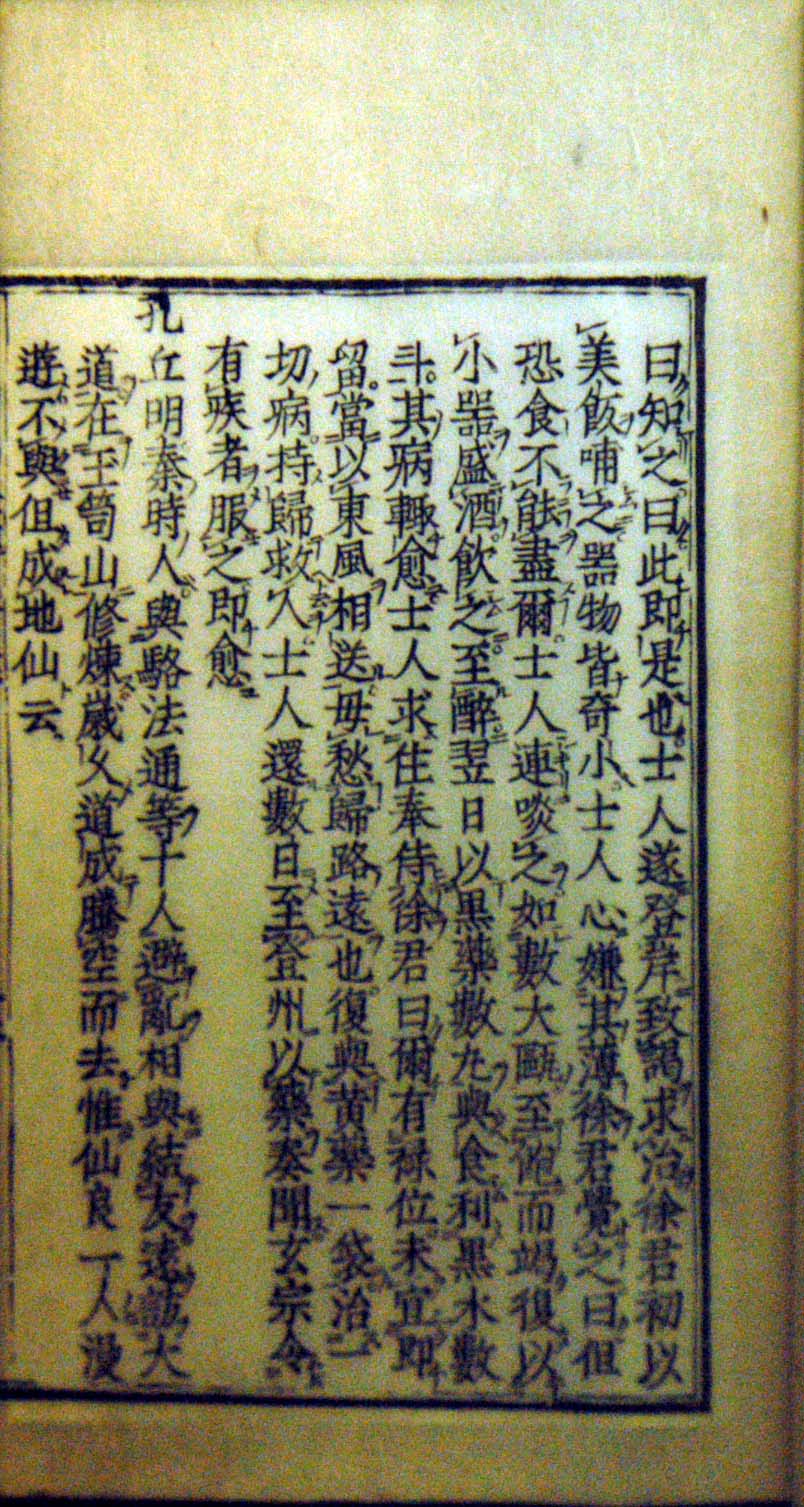 曰知之曰此即是也士人遂登岸致謁求治徐君初以
美飯哺之器物皆奇小士人心嫌其薄徐君覺之曰但
恐食不能盡爾士人連啖之如數大甌至飽而竭復以
小器盛酒飲之至醉翌日以黒藥數丸與食利黒水數
斗其病輙愈士人求住奉侍徐君曰爾有祿位未宜即
留當以東風相送毋愁歸路遠也復與黃藥一袋治一
切病持歸救人士人還數日至登州以藥奏聞玄宗令
有疾者服之即愈
孔丘明秦時人與駱法通等十人避亂相與結友遠訪大
道在玉笥山修煉歲久道成騰空而去惟仙良一人漫
遊不與但成地仙云